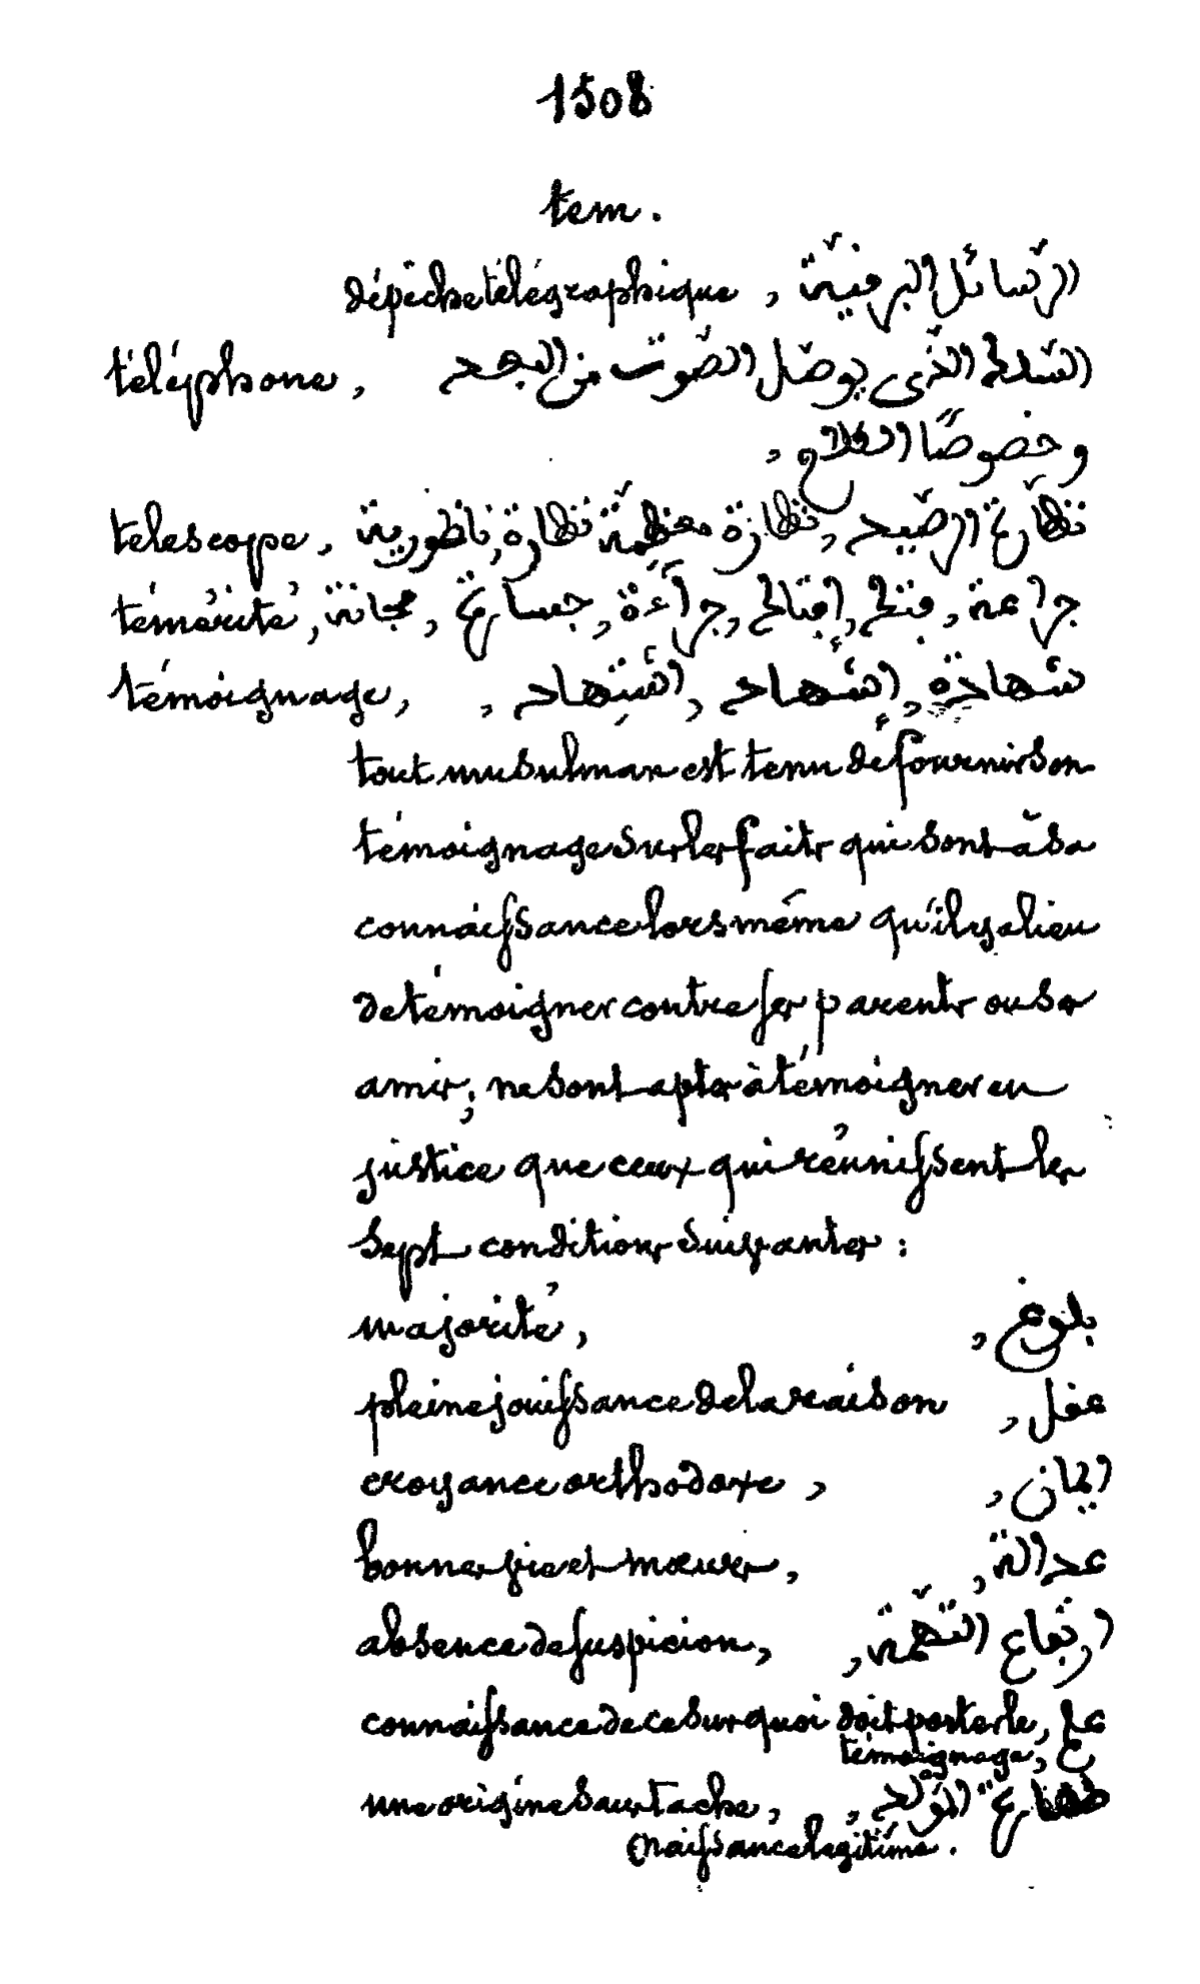 1508
tem.
dépêche télégraphique, الرّسائل البرقيّة
téléphone, السّلك الذّى يوصّل الصّوت من البعد
وخصوصًا الكلام,
telescope, نظّارة الرّصيد, نظّارة معظمّة نظارة, ناظورية
témérité, جراعة, فتك, إفتاك, جرآءة, جسارة, مجانة
témoignage, شهادة, إشهاد, استشهاد,
tout musulman est tenu de fournir son
témoignage sur les faits qui sont à sa
connaissance lors même qu'il y a lieu
de témoigner contre ses parents ou ses
amis; ne sont aptes à témoigner en
justice que ceux qui réunissent les
sept conditions suivantes :
majorité, بلوغ,
pleine jouissance de la raison عقل,
croyance orthodoxe, ايمان,
bonnes vie et mœurs, عدالة,
absence de suspicion, ارتفاع التّهمة,
connaissance de ce sur quoi doit porter le, علم
témoignage,
une origine sans tache, طهارة المولد,
naissance légitime.